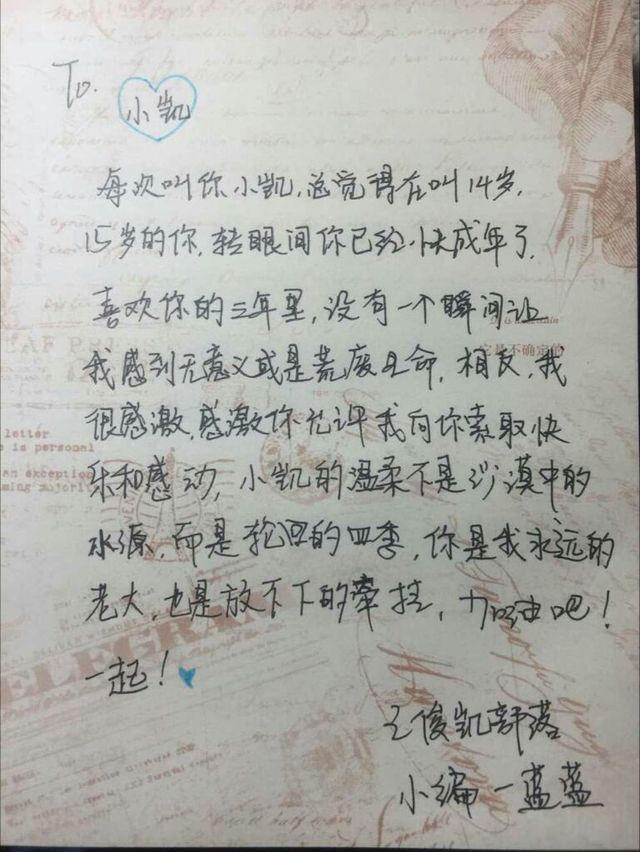 To.
小凯
每次叫你小凯,总觉得在叫14岁,
15岁的你,转眼间你已经快成年了.
喜欢你的三年里,没有一个瞬间让
我感到无意义或是荒废生命,相反,我
很感激,感激你允许我向你索取快
乐和感动,小凯的温柔不是沙漠中的
水源,而是轮回的四季,你是我永远的
老大,也是放不下的牵挂,加油吧!
一起!
王俊凯部落
小编—蓝蓝
是不确定的
letter
e is personal
an exception
ming majority
AF PRE
ELEGRAM